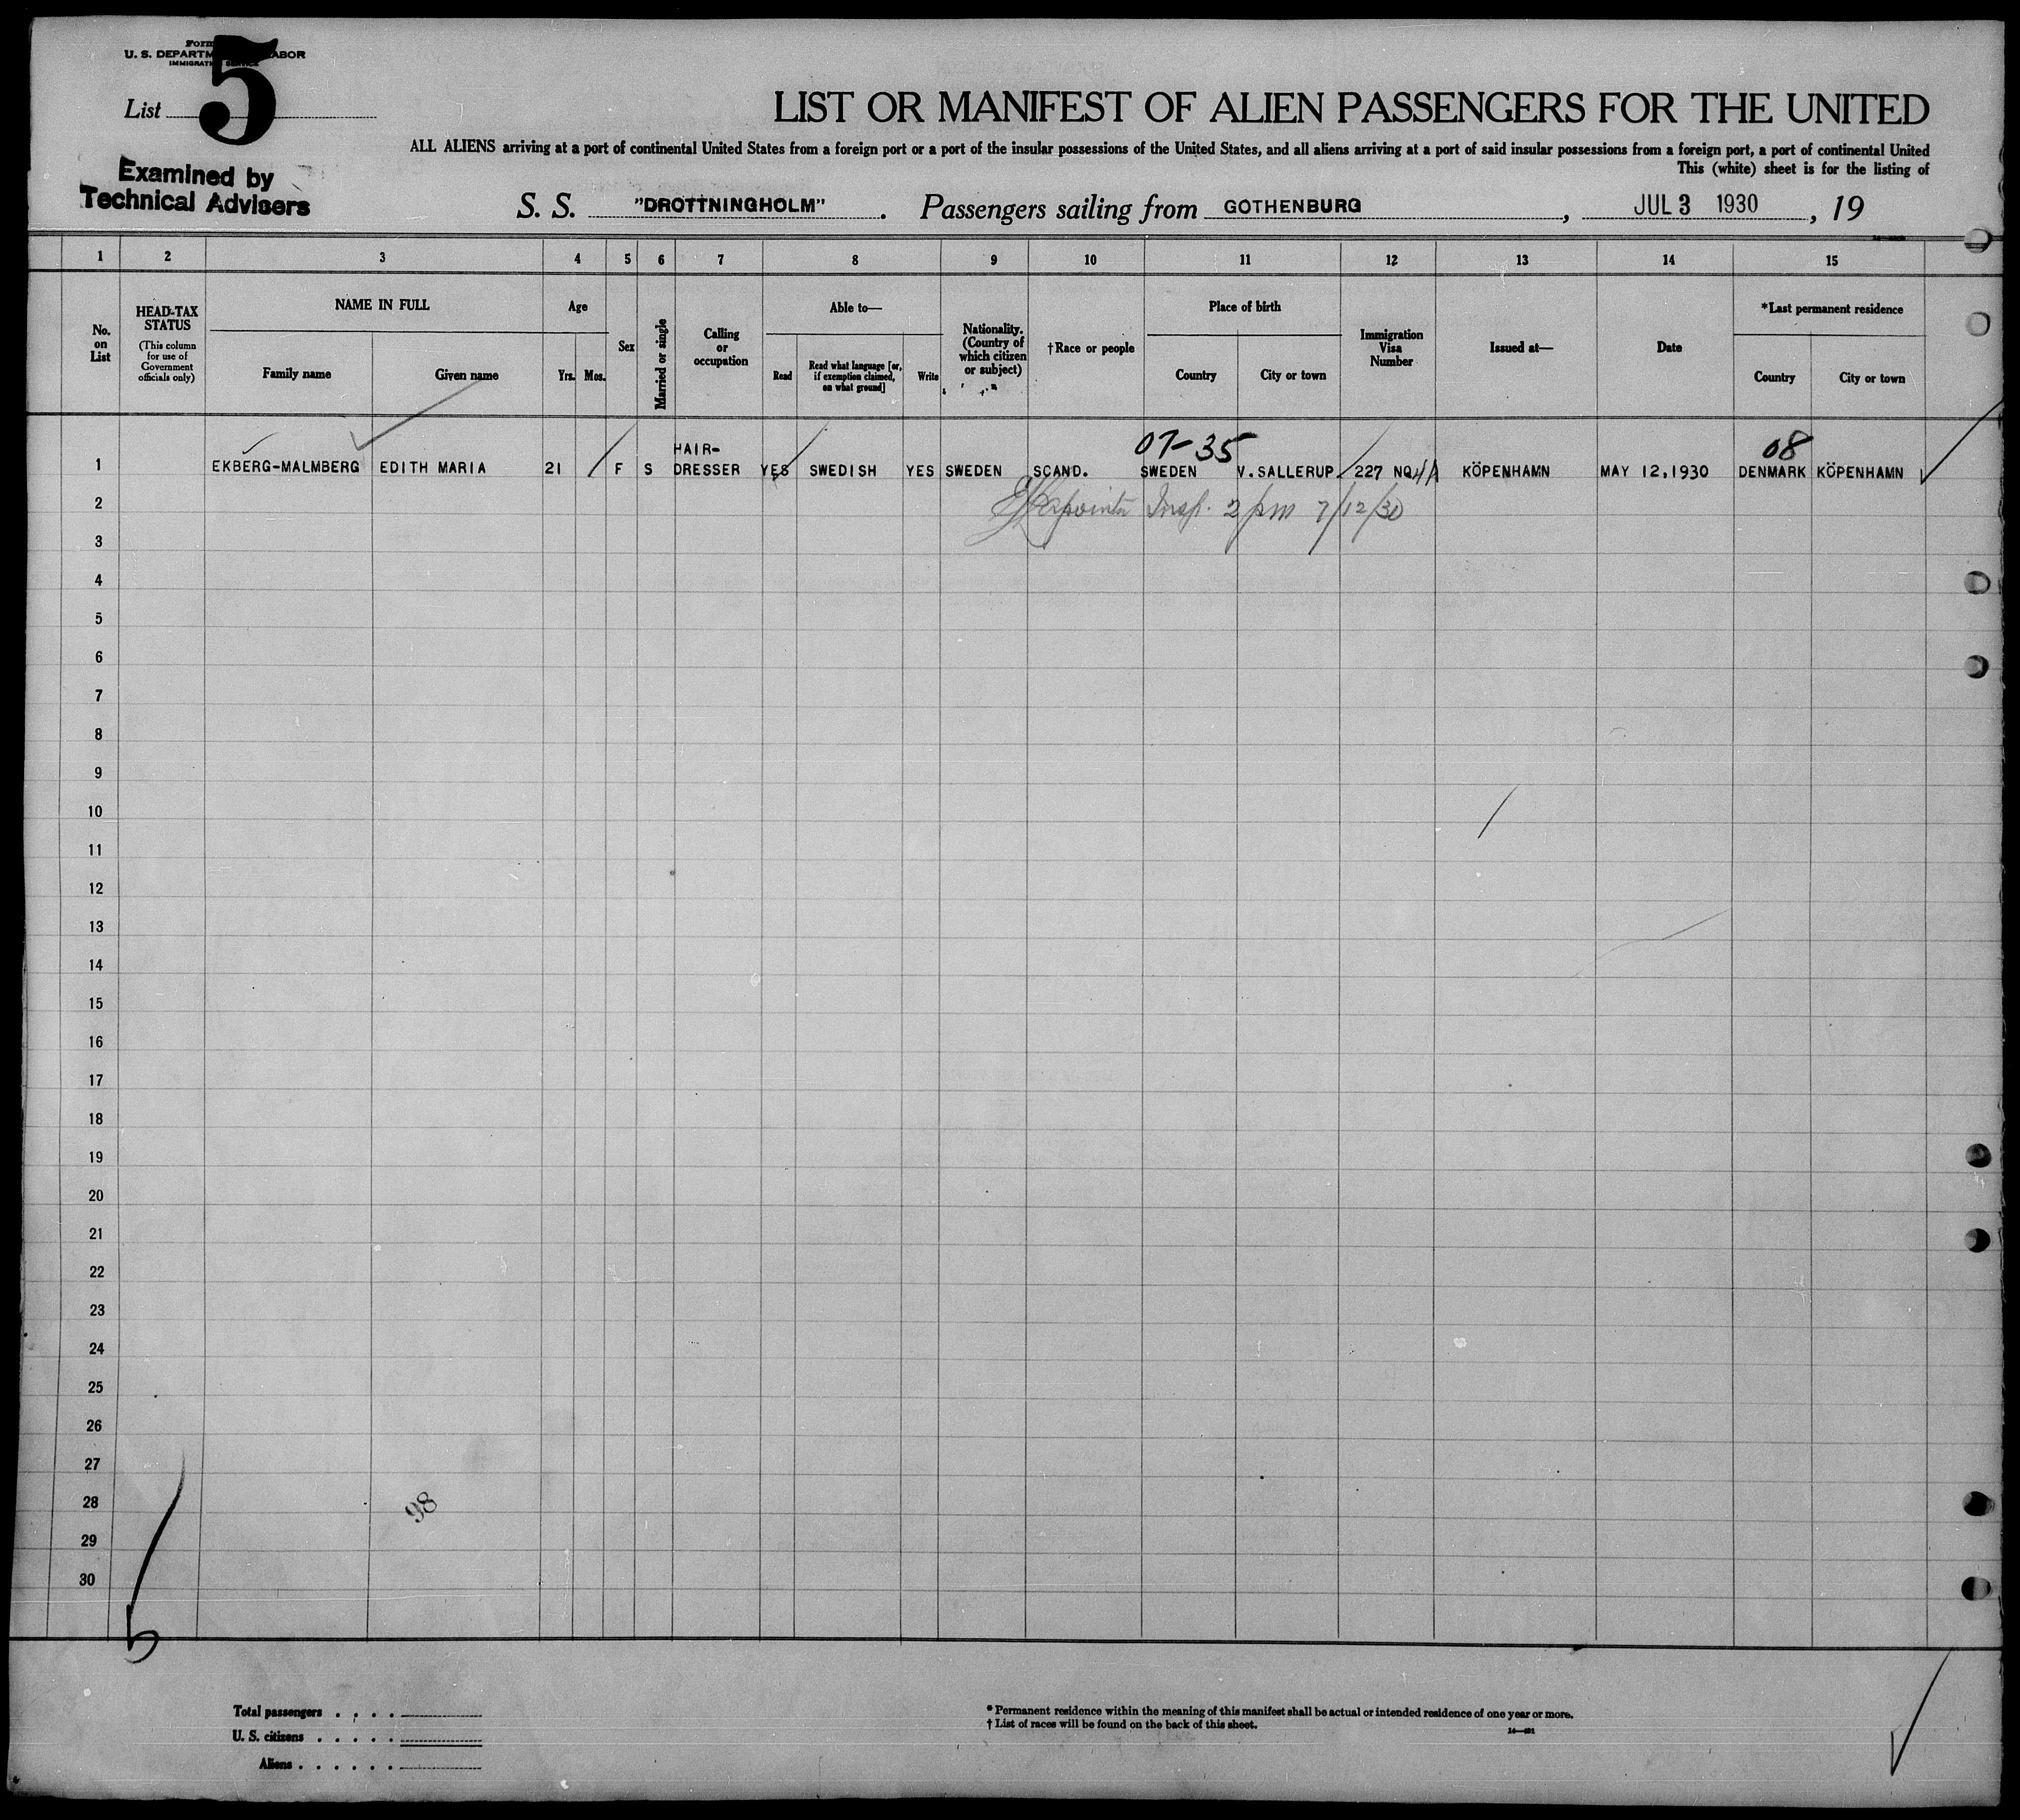 Form
U. S. DEPARTM ABOR
IMMIGRATI
List 5
Examined by
Technical Advisers
LIST OR MANIFEST OF ALIEN PASSENGERS FOR THE UNITED
ALL ALIENS arriving at a port of continental United States from a foreign port or a port of the insular possessions of the United States, and all aliens arriving at a port of said insular possessions from a foreign port, a port of continental United
This (white) sheet is for the listing of
S. S. "DROTTNINGHOLM" . Passengers sailing from GOTHENBURG , JUL 3 1930 , 19
1 2 3 4 5 6 7 8 9 10 11 12 13 14 15
No. on List
HEAD-TAX STATUS
(This column for use of Government officials only)
NAME IN FULL
Family name Given name
Age
Yrs. Mos.
Sex
Married or single
Calling or occupation
Able to—
Read
Read what language [or, if exemption claimed, on what ground]
Write
Nationality. (Country of which citizen or subject)
†Race or people
Place of birth
Country City or town
Immigration Visa Number
Issued at—
Date
*Last permanent residence
Country City or town
07-35 08
1 EKBERG-MALMBERG EDITH MARIA 21 F S HAIR-DRESSER YES SWEDISH YES SWEDEN SCAND. SWEDEN V.SALLERUP 227 NQ KÖPENHAMN MAY 12,1930 DENMARK KÖPENHAMN
2 Insp. 2 pm 7/12/30
3
4
5
6
7
8
9
10
11
12
13
14
15
16
17
18
19
20
21
22
23
24
25
26
27
28
98
29
30
Total passengers . . . .
U. S. citizens . . . . .
Aliens . . . . . .
* Permanent residence within the meaning of this manifest shall be actual or intended residence of one year or more.
† List of races will be found on the back of this sheet.